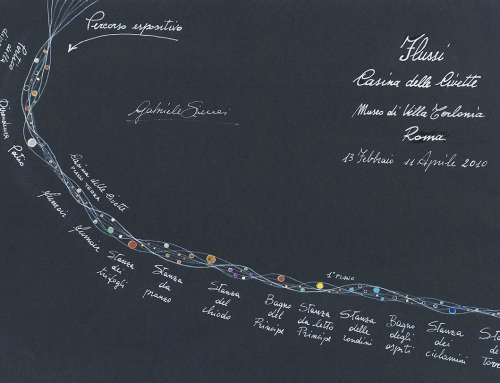 Percorso espositivo
Flussi
Casina delle Civette
Museo di Villa Torlonia
Roma
13 Febbraio 11 Aprile 2010
Gabriele
Dipendenza
Patio
Casina delle Civette
Piano Terra
Fumoir
Fumoir
Stanza
dei
trifogli
Stanza
da
pranzo
Stanza
del
chiodo
Bagno
del
Principe
1° Piano
Stanza
da letto
Principe
Stanza
delle
rondini
Bagno
degli
ospiti
Stanza
dei
ciclamini